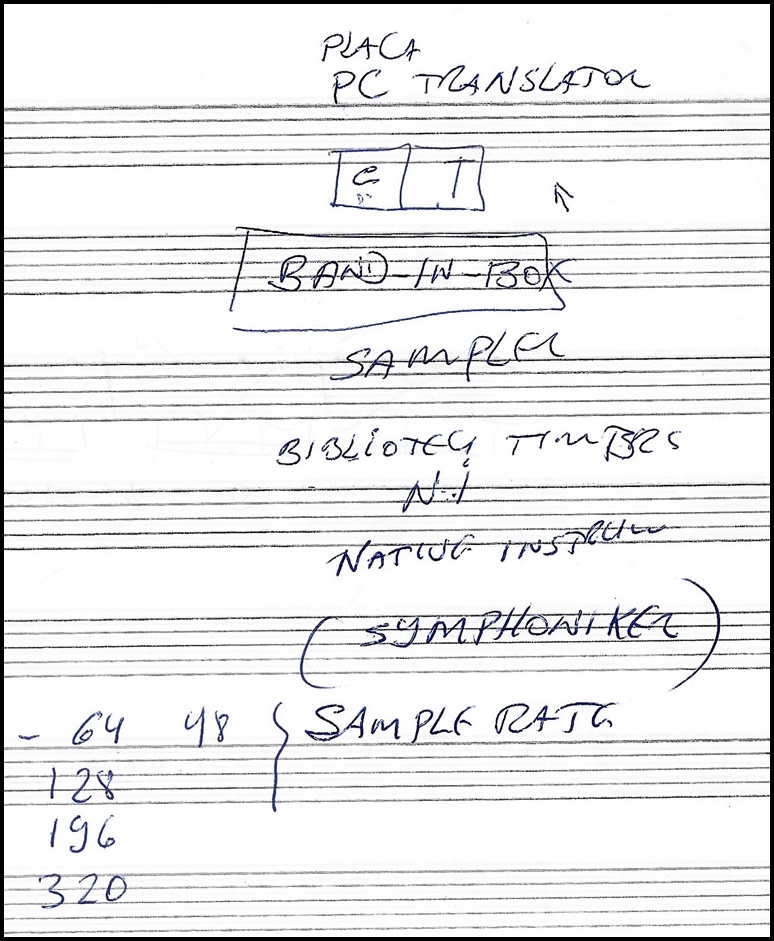 PLACA
PC TRANSLATOR
e T
BAND-IN-BOX
SAMPLER
BIBLIOTECA TIMBRES
N.I
NATIVE INSTRUM
(SYMPHONIKER)
- 64 48 } SAMPLE RATE
128
196
320